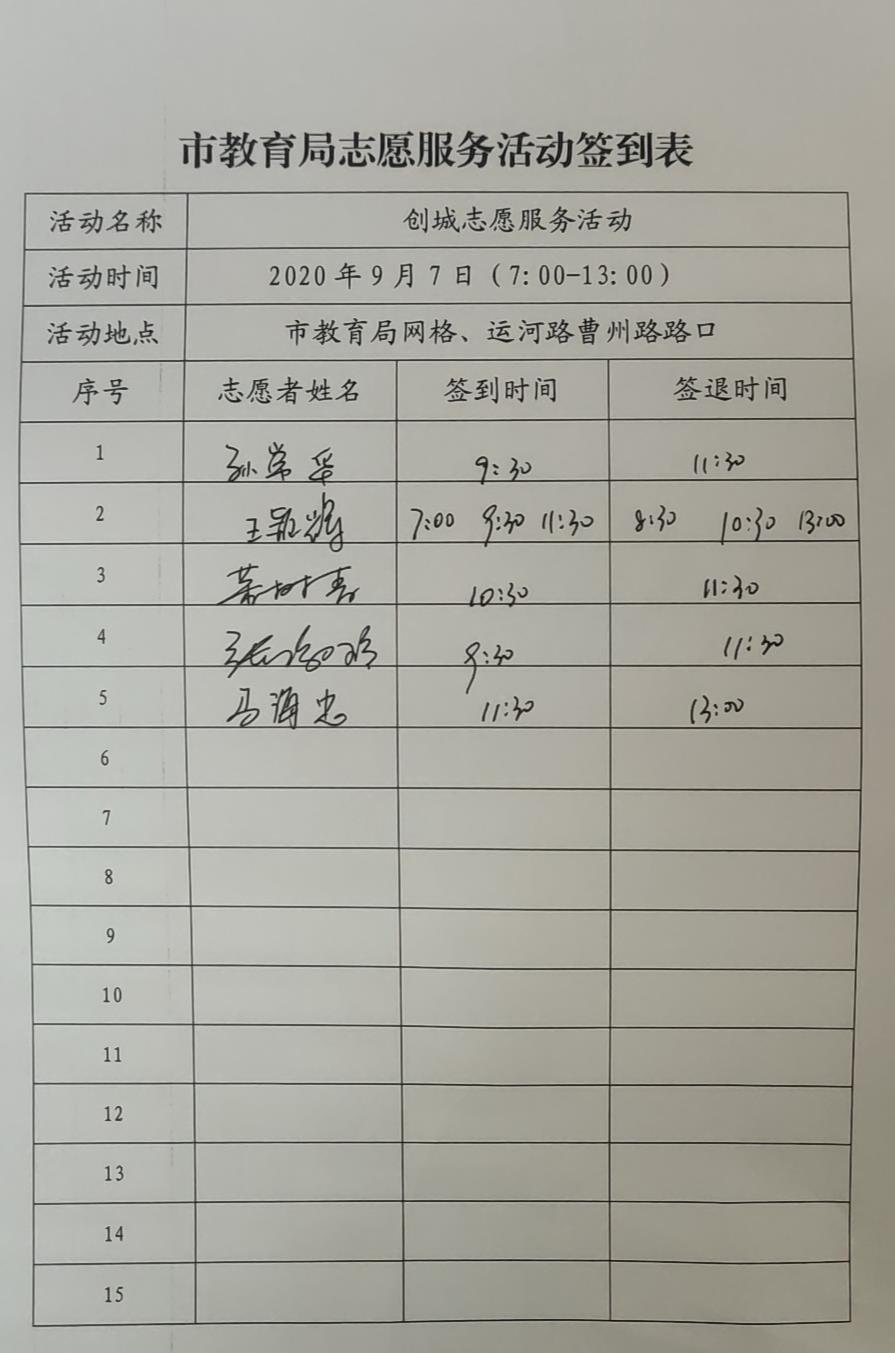 市教育局志愿服务活动签到表
活动名称 创城志愿服务活动
活动时间 2020年9月7日(7:00-13:00)
活动地点 市教育局网格、运河路曹州路路口
序号 志愿者姓名 签到时间 签退时间
1 孙常华 9:30 11:30
2 王 7:00 9:30 11:30 8:30 10:30 13:00
3 10:30 11:30
4 9:30 11:30
5 马海忠 11:30 13:00
6
7
8
9
10
11
12
13
14
15